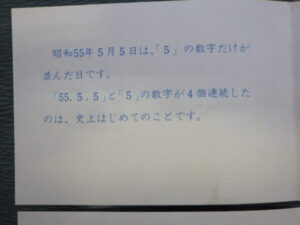 昭和55年5月5日は、「5」の数字だけが
並んだ日です。
「55.5.5」と「5」の数字が4個連続した
のは、史上はじめてのことです。